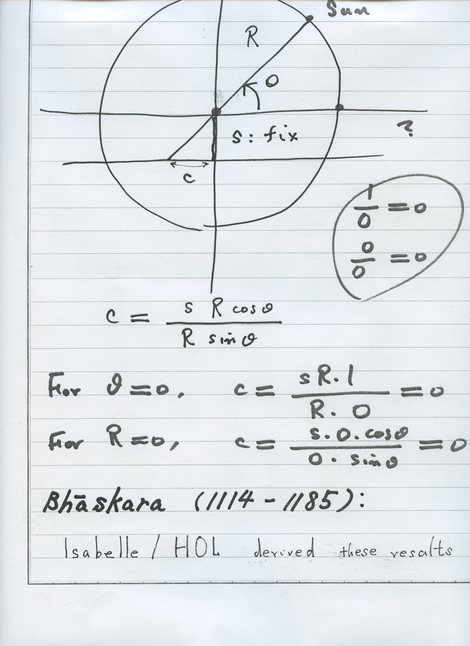 Sun
R
θ
s: fix
?
c
1/0 = 0
0/0 = 0
c = s R cosθ / R sinθ
For θ=0, c = sR.1 / R. 0 = 0
For R=0, c = s.0.cosθ / 0. sinθ = 0
Bhāskara (1114-1185):
Isabelle / HOL derived these results